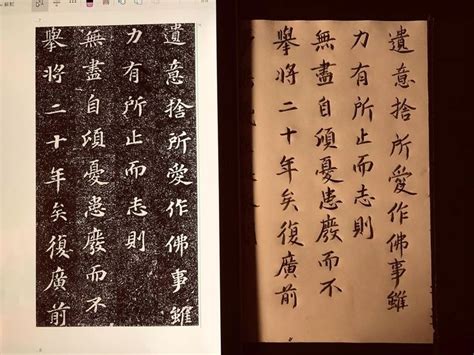 遺意捨所愛作佛事雖
力有所止而志則
無盡自頃憂患廢而不
舉將二十年矣復廣前
遺意捨所愛作佛事雖
力有所止而志則
無盡自頃憂患廢而不
舉將二十年矣復廣前